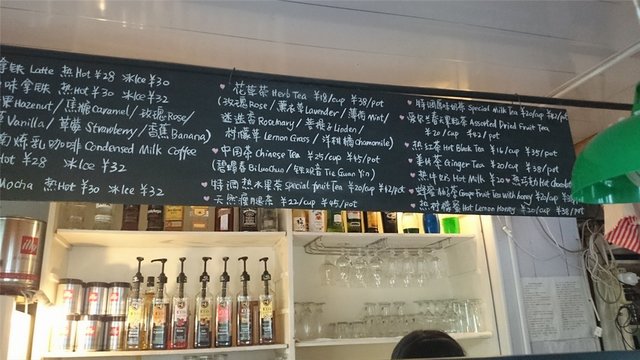 拿铁 Latte 热Hot ¥28 冰Ice ¥30
味拿铁 热Hot ¥30 冰Ice ¥32
Hazenut/焦糖Caramel/玫瑰Rose/
Vanilla/草莓Strawberry/香蕉Banana)
炼乳咖啡 Condensed Milk Coffee
Hot ¥28 冰Ice ¥32
Mocha 热Hot ¥30 冰Ice ¥32
花草茶 Herb Tea ¥18/cup ¥38/pot
(玫瑰Rose/薰衣草Lavander/薄荷Mint/
迷迭香Rosemary/菩提子Linden/
柠檬草Lemon Grass/洋柑橘chamomile)
中国茶 Chinese Tea ¥25/cup ¥45/pot
(碧螺春BiLuoChun/铁观音Tie Guan Yin)
特调热水果茶 special fruit Tea ¥20/cup ¥42/pot
天然瘦腿茶 ¥22/cup ¥45/pot
特调原味奶茶 Special Milk Tea ¥20/cup ¥42/
Assorted Dried Fruit Tea
¥20/cup ¥42/pot
热红茶 Hot Black Tea ¥16/cup ¥35/pot
姜汁茶 Ginger Tea ¥20/cup ¥38/pot
热牛奶 Hot Milk ¥20 热巧克力 Hot chocolate
蜂蜜柚子茶 Grape Fruit Tea with honey ¥20/cup
热柠檬蜜 Hot Lemon Honey ¥20/cup ¥38/pot
illy